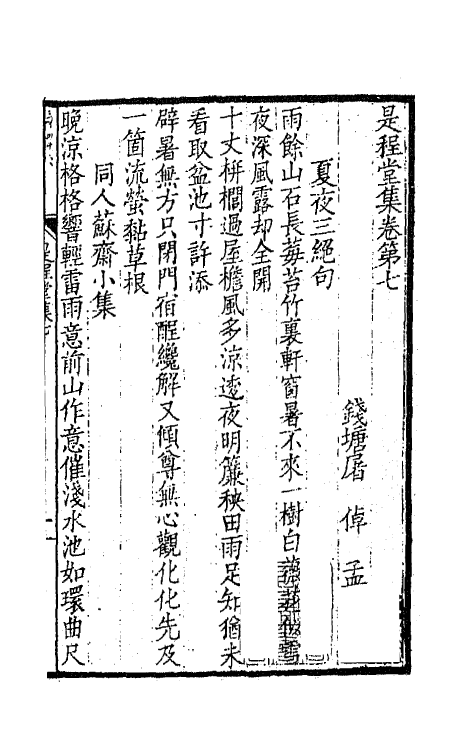 是程堂集卷第七
錢塘屠倬孟
夏夜三絕句
雨餘山石長莓苔竹裏軒窗暑不來一樹白蓮花似雪
夜深風露却全開
十丈栟櫚過屋檐風多涼透夜明簾秧田雨足知猶未
看取盆池寸許添
辟暑無方只閉門宿酲纔解又傾尊無心觀化化先及
一箇流螢黏草根
同人蘇齋小集
晚涼格格響輕雷雨意前山作意催淺水池如環曲尺